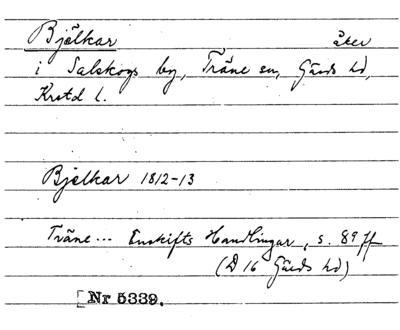 Bjälkar åker
i Salskogs by, Träne sn, Gärds hd,
Krstd l.
Bjelkar 1812-13
Träne... Enskifts Handlingar, s. 89 ff
(D 16 Gärds hd)
[Nr 5339.